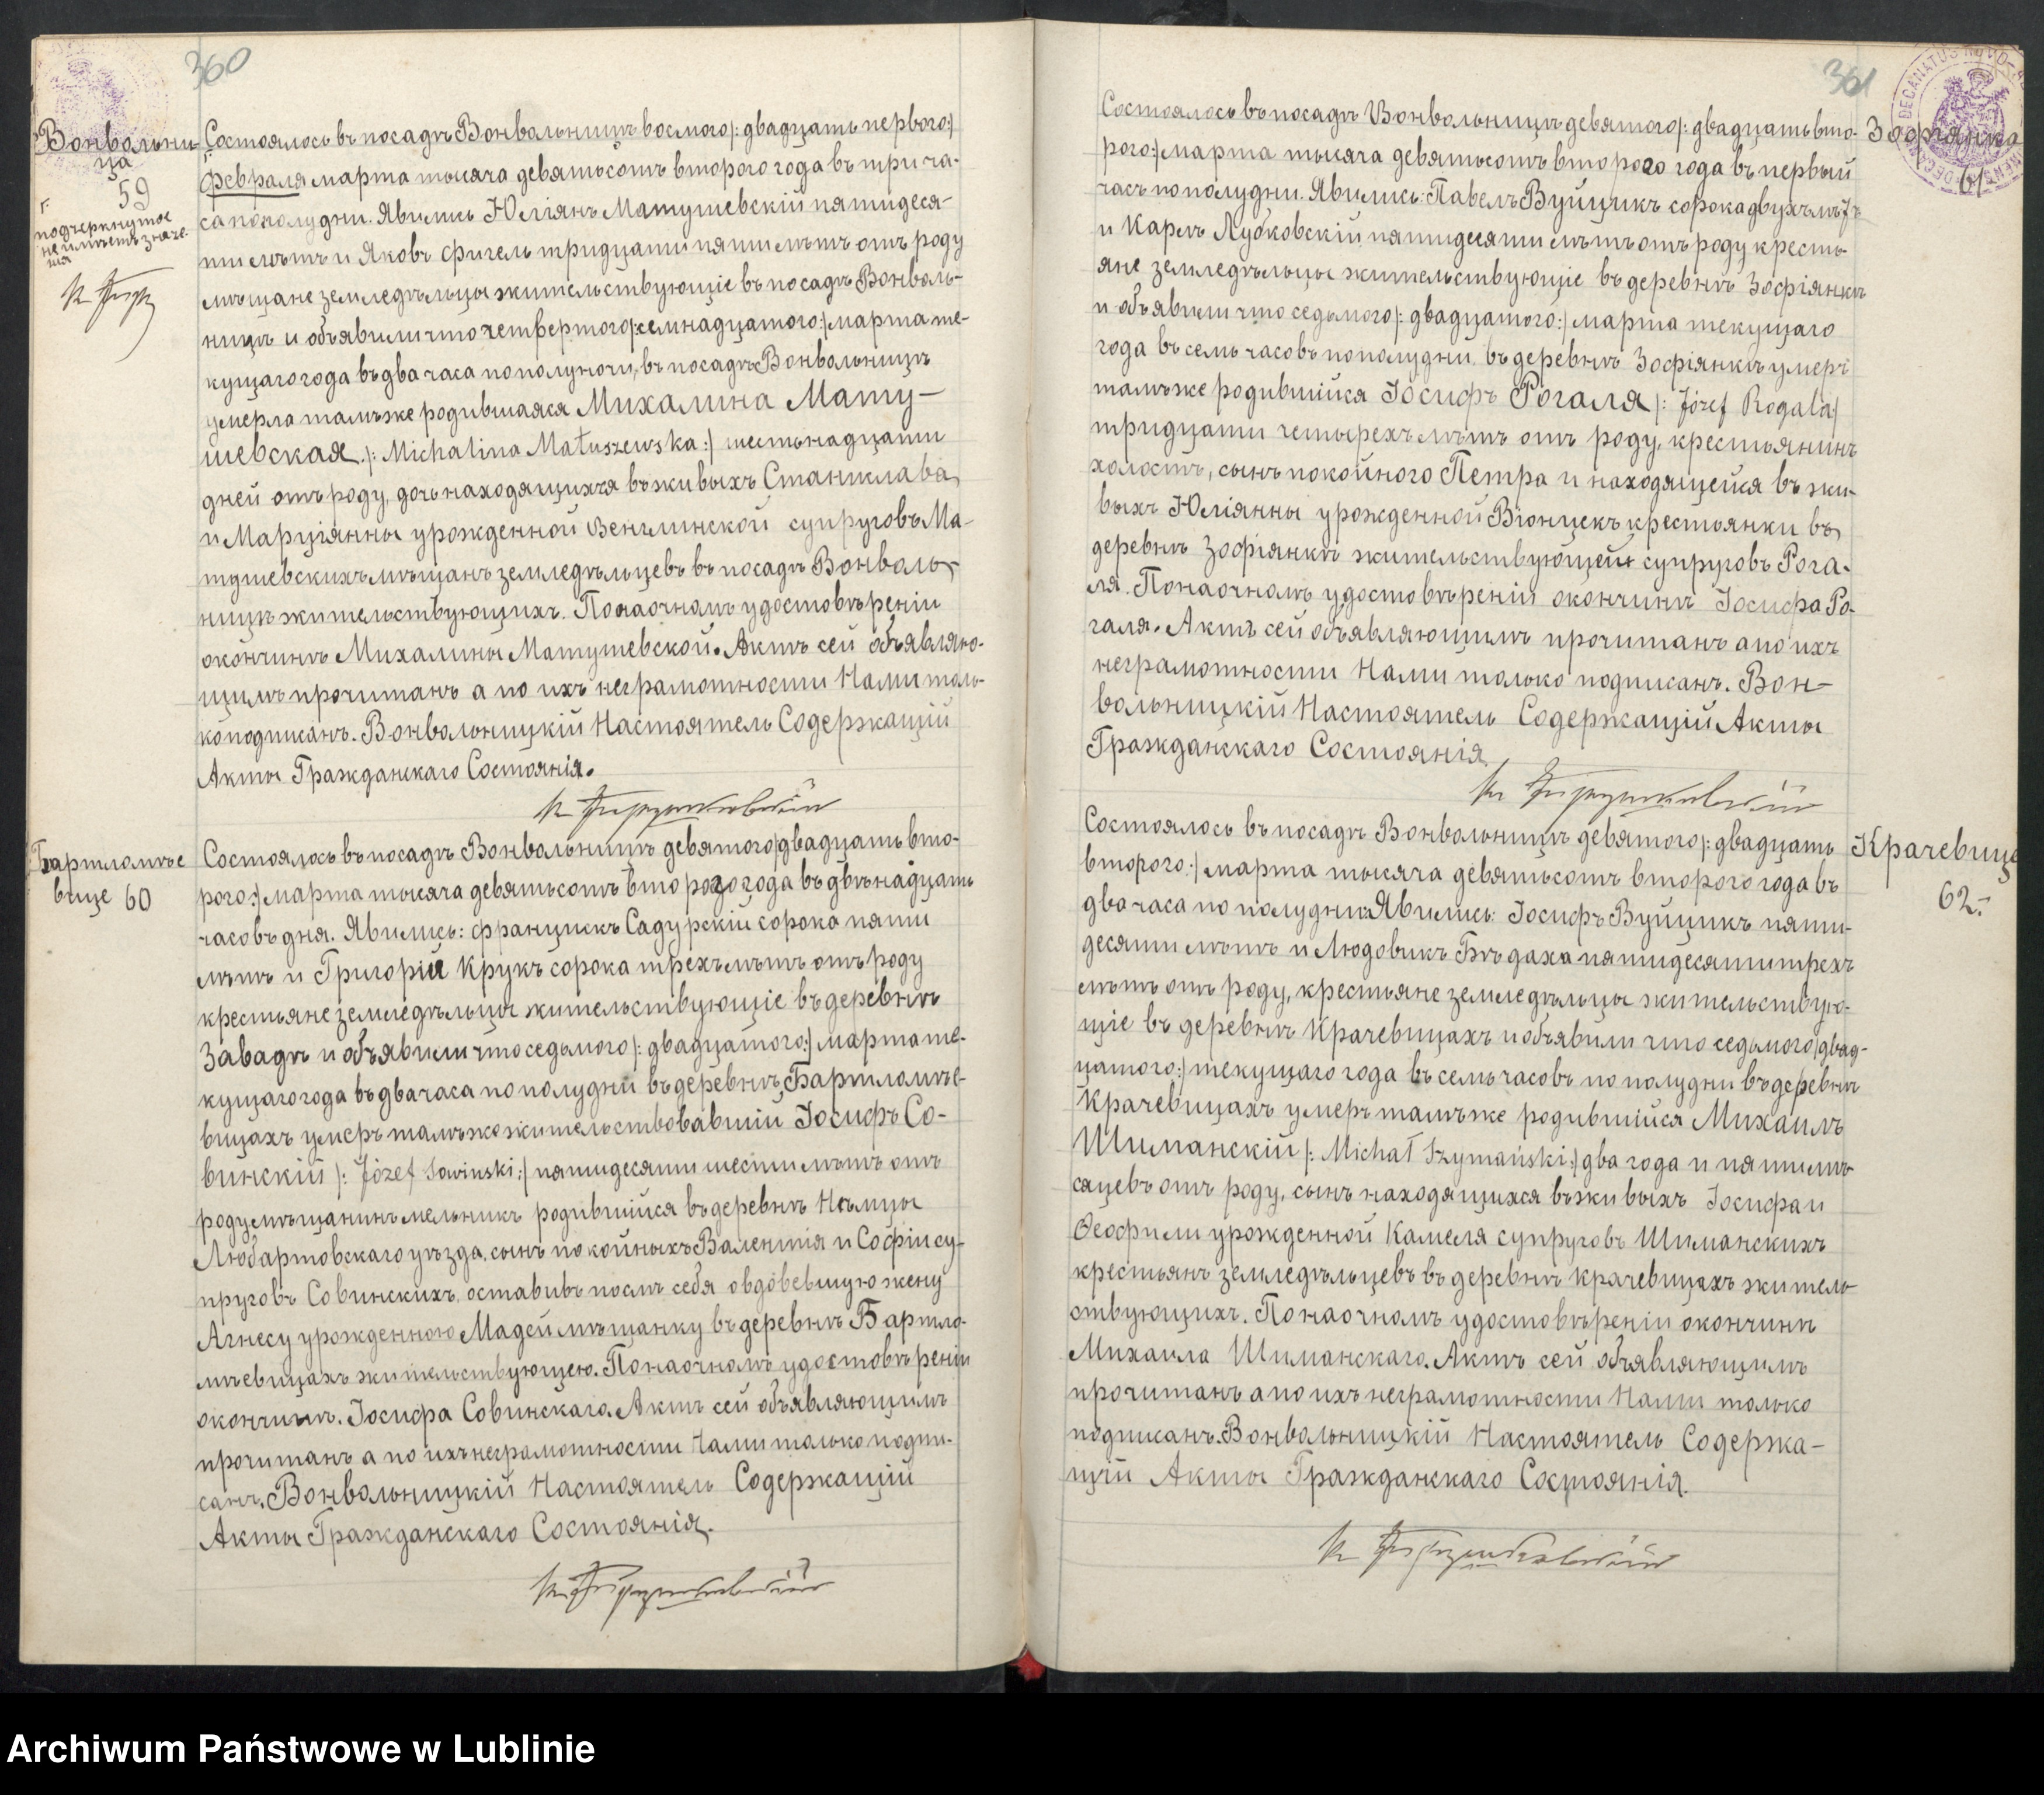 360
Вонвольни-
ца
59
подчеркнутое
не имѣетъ значе-
нія
Состоялось въ посадѣ Вонвольницѣ восьмого /: двадцать перваго :/
февраля марта тысяча девятьсотъ второго года въ три ча-
са пополудни. Явились Юліянъ Матушевскій пятидеся-
ти лѣтъ и Яковъ Фигель тридцати пяти лѣтъ отъ роду
мѣщане земледѣльцы жительствующіе въ посадѣ Вонволь-
ницѣ и объявили что четвертого /: семнадцатого :/ марта те-
кущаго года въ два часа пополуночи, въ посадѣ Вонвольницѣ
умерла тамъ же родившаяся Михалина Мату-
шевская /: Michalina Matuszewska :/ шестьнадцати
дней отъ роду, дочь находящихся въ живыхъ Станислава
и Марціянны урожденной Венглинской супруговъ Ма-
тушевскихъ мѣщанъ земледѣльцевъ въ посадѣ Вонволь-
ницѣ жительствующихъ. По наочномъ удостовѣреніи
окончинѣ Михалины Матушевской. Актъ сей объявляю-
щимъ прочитанъ а по ихъ неграмотности Нами толь-
ко подписанъ. Вонвольницкій Настоятель Содержащій
Акты Гражданскаго Состоянія.
Бартломѣе
вице 60
Состоялось въ посадѣ Вонвольницѣ девятого /: двадцать вто-
рого :/ марта тысяча девятьсотъ второго года въ двѣнадцать
часовъ дня. Явились: Францискъ Садурскій сорока пяти
лѣтъ и Григорій Крукъ сорока трехъ лѣтъ отъ роду
крестьяне земледѣльцы жительствующіе въ деревнѣ
Завадѣ и объявили что седьмого /: двадцатого :/ марта те-
кущаго года въ два часа пополудни въ деревнѣ Бартломѣе-
вицахъ умеръ тамъ же жительствовавшій Іосифъ Со-
винскій /: Józef Sowinski :/ пятидесяти шести лѣтъ отъ
роду мѣщанинъ мельникъ родившійся въ деревнѣ Нѣмцы
Любартовскаго уѣзда, сынъ покойныхъ Валентія и Софіи су-
пруговъ Совинскихъ, оставивъ послѣ себя овдовевшую жену
Агнесу урожденною Мадей мѣщанку въ деревнѣ Бартло-
мѣевицахъ жительствующею. По наочномъ удостовѣреніи
окончинѣ Іосифа Совинскаго. Актъ сей объявляющимъ
прочитанъ а по ихъ неграмотности Нами только подпи-
санъ. Вонвольницкій Настоятель Содержащій
Акты Гражданскаго Состоянія.
361
Зофіянка
61
Состоялось въ посадѣ Вонвольницѣ девятого /: двадцать вто-
рого :/ марта тысяча девятьсотъ второго года въ первый
часъ пополудни. Явились: Павелъ Вуйцикъ сорока двухъ лѣтъ
и Карлъ Лубковскій пятидесяти лѣтъ отъ роду кресть-
яне земледѣльцы жительствующіе въ деревнѣ Зофіянкѣ
и объявили что седьмого /: двадцатого :/ марта текущаго
года въ семь часовъ пополудни въ деревнѣ Зофіянкѣ умеръ
тамъ же родившійся Іосифъ Рогаля /: Józef Rogala :/
тридцати четырехъ лѣтъ отъ роду, крестьянинъ
холостъ, сынъ покойного Петра и находящейся въ жи-
выхъ Юліянны урожденной Віонцекъ крестьянки въ
деревнѣ Зофіянкѣ жительствующей супруговъ Рога-
ля. По наочномъ удостовѣреніи окончинѣ Іосифа Ро-
галя. Актъ сей объявляющимъ прочитанъ а по ихъ
неграмотности Нами только подписанъ. Вон-
вольницкій Настоятель Содержащій Акты
Гражданскаго Состоянія
Крачевице
62.
Состоялось въ посадѣ Вонвольницѣ девятого /: двадцать
второго :/ марта тысяча девятьсотъ второго года въ
два часа пополудни. Явились: Іосифъ Вуйцикъ пяти-
десяти лѣтъ и Людовикъ Бѣдаха пятидесяти трехъ
лѣтъ отъ роду, крестьяне земледѣльцы жительствую-
щіе въ деревнѣ Крачевицахъ и объявили что седьмого /: двад-
цатого :/ текущаго года въ семь часовъ пополудни въ деревнѣ
Крачевицахъ умеръ тамъ же родившійся Михаилъ
Шиманскій /: Michał Szymański :/ два года и пяти мѣ-
сяцевъ отъ роду, сынъ находящихся въ живыхъ Іосифа и
Ѳеофили урожденной Камеля супруговъ Шиманскихъ
крестьянъ земледѣльцевъ въ деревнѣ Крачевицахъ житель-
ствующихъ. По наочномъ удостовѣреніи окончинѣ
Михаила Шиманскаго. Актъ сей объявляющимъ
прочитанъ а по ихъ неграмотности Нами только
подписанъ. Вонвольницкій Настоятель Содержа-
щій Акты Гражданскаго Состоянія.
Archiwum Państwowe w Lublinie